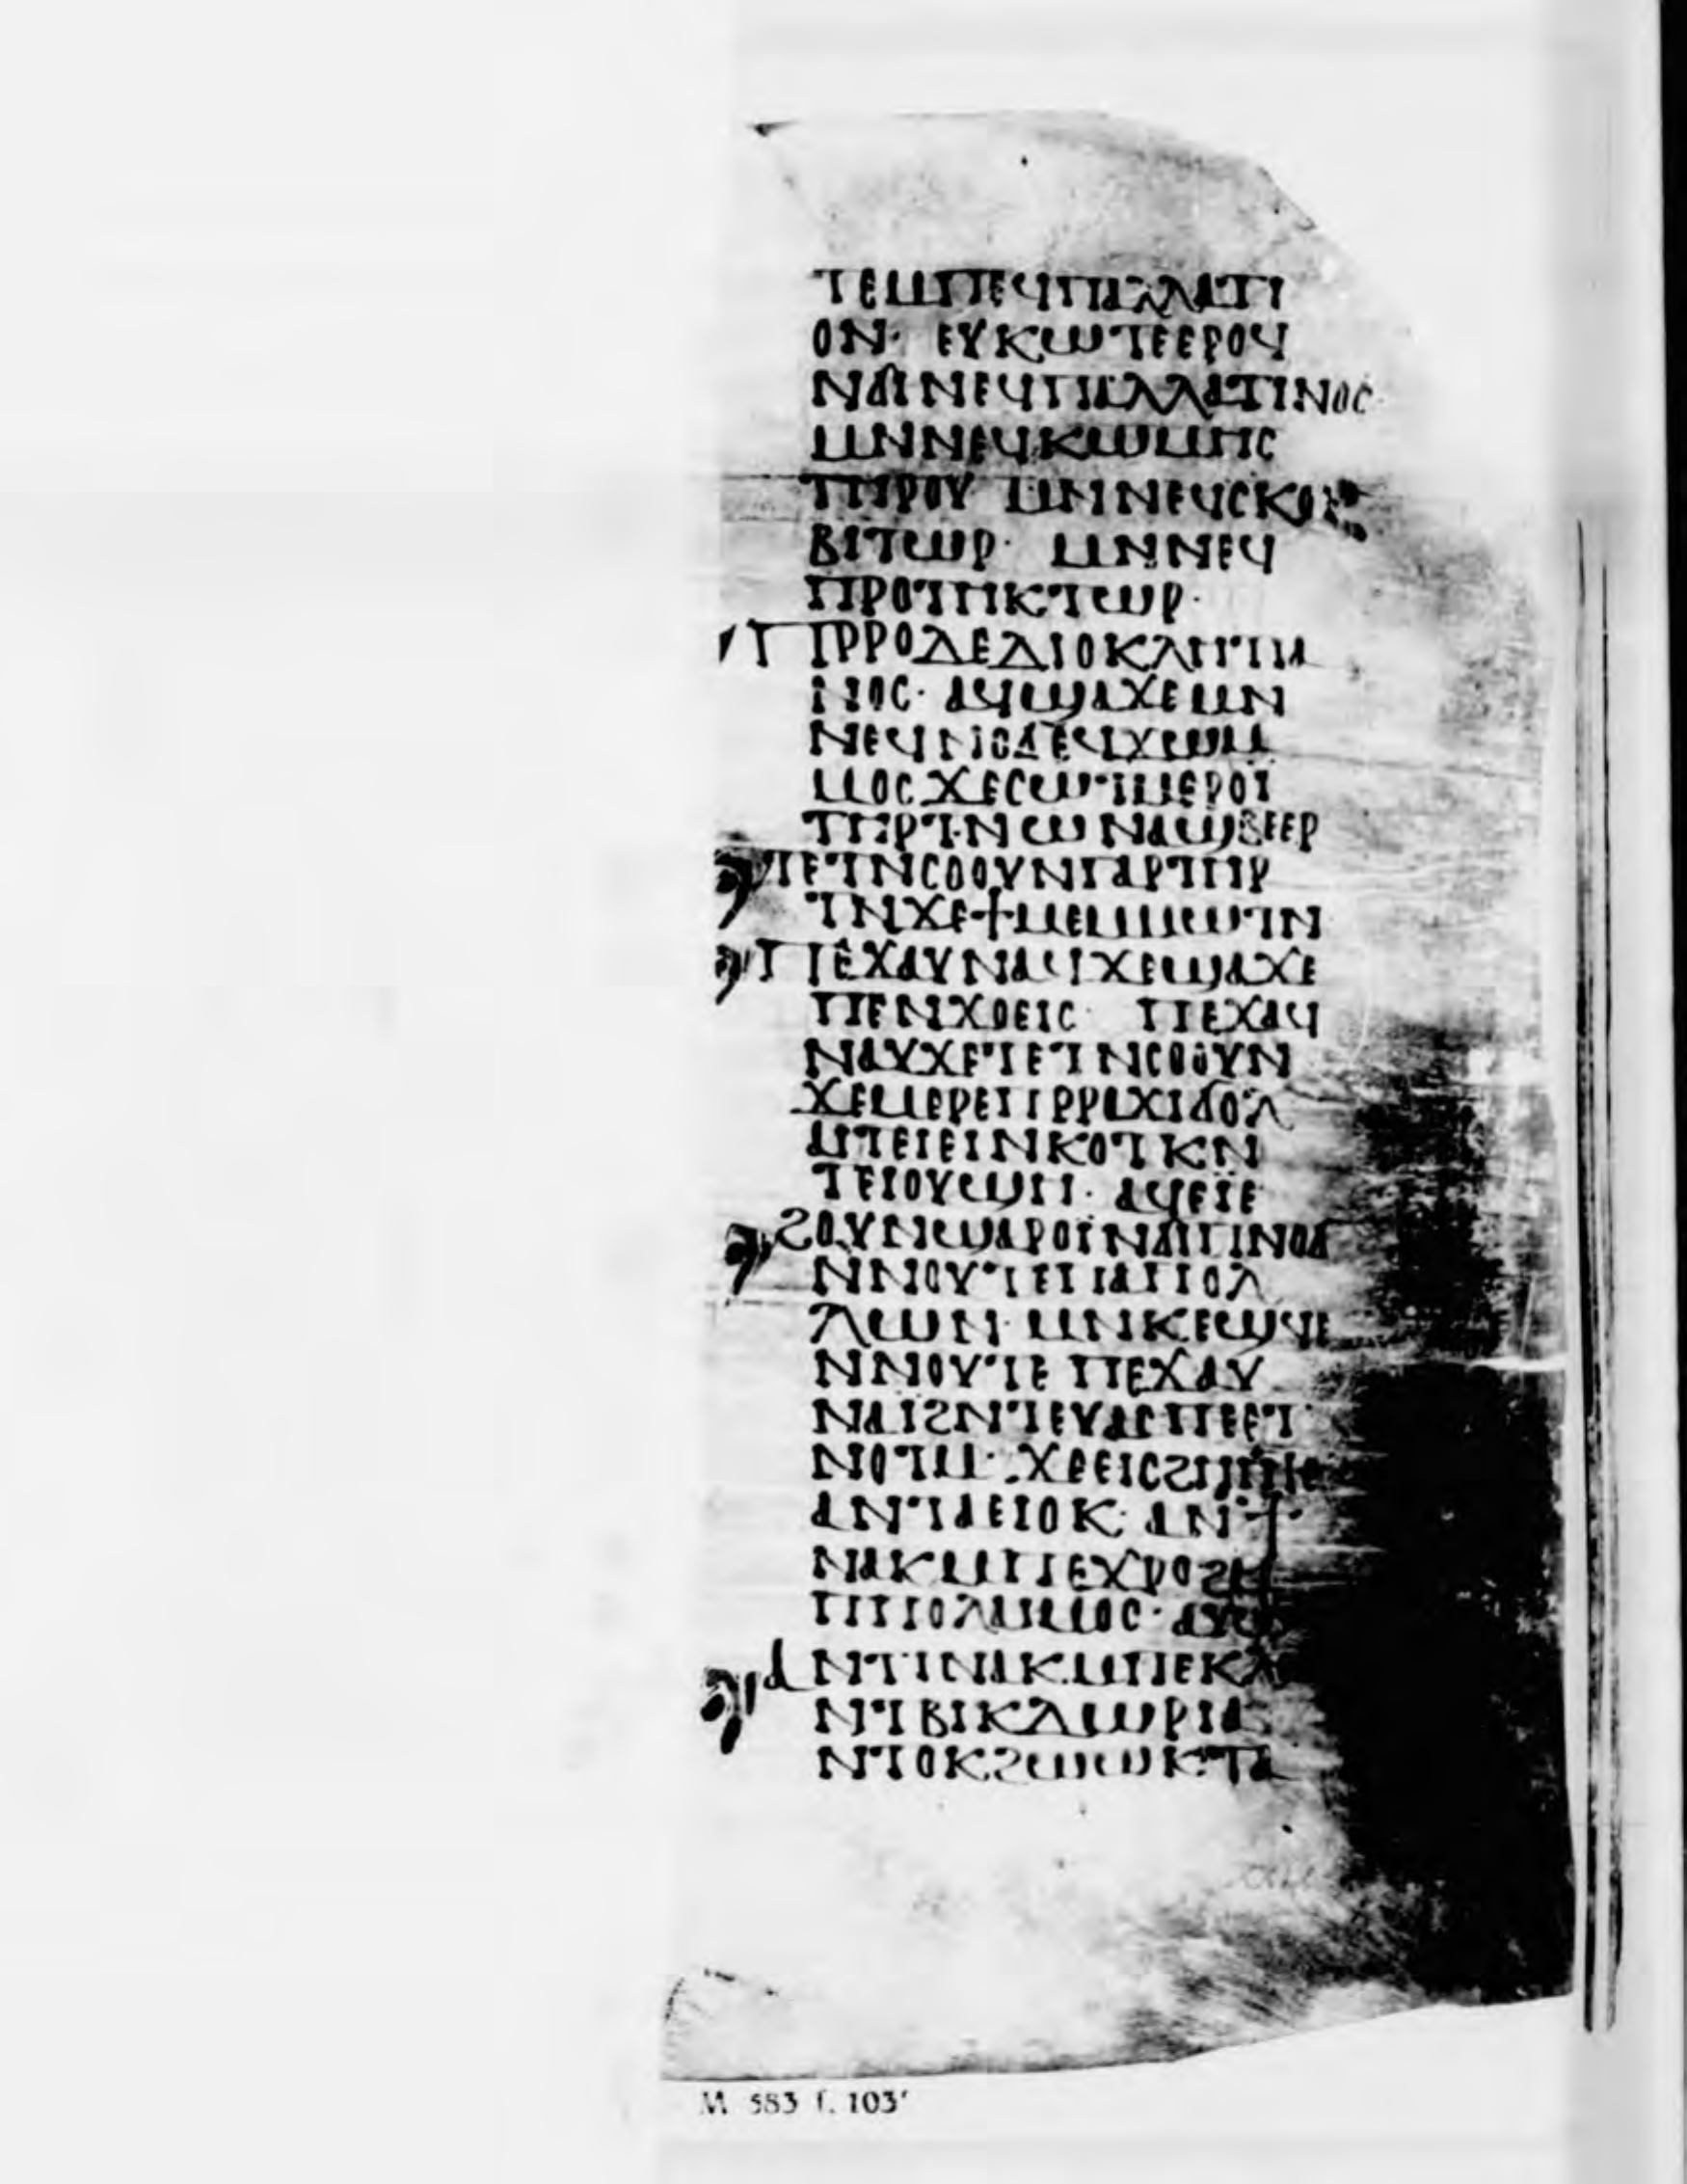 ⲧⲉⲙⲡⲉϥⲡⲁⲗⲗⲁⲧⲓ
ⲟⲛ· ⲉⲩⲕⲱⲧⲉⲉⲣⲟϥ
ⲛϭⲓⲛⲉϥⲡⲁⲗⲗⲁⲧⲓⲛⲟⲥ·
ⲙⲛⲛⲉϥⲕⲱⲙⲏⲥ
ⲧⲏⲣⲟⲩ ⲙⲛⲛⲉϥⲥⲕⲟⲩ
ⲃⲓⲧⲱⲣ· ⲙⲛⲛⲉϥ
ⲡⲣⲟⲧⲏⲕⲧⲱⲣ·
ⲡⲣⲣⲟⲇⲉⲇⲓⲟⲕⲗⲏⲧⲓⲁ
ⲛⲟⲥ· ⲁϥϣⲁϫⲉⲙⲛ
ⲛⲉϥⲛⲟϭⲉϥϫⲱⲙ
ⲙⲟⲥϫⲉⲥⲱⲧⲙⲉⲣⲟⲓ
ⲧⲏⲣⲧⲛⲱⲛⲁϣⲃⲉⲉⲣ
ⲧⲉⲧⲛⲥⲟⲟⲩⲛⲅⲁⲣⲧⲏⲣ
ⲧⲛϫⲉϯⲙⲉⲙⲙⲱⲧⲛ
ⲡⲉϫⲁⲩⲛⲁϥϫⲉϣⲁϫⲉ
ⲡⲉⲛϫⲟⲉⲓⲥ· ⲡⲉϫⲁϥ
ⲛⲁⲩϫⲉⲧⲉⲧⲛⲥⲟⲟⲩⲛ
ϫⲉⲙⲉⲣⲉⲡⲣⲣⲟϫⲓϭⲟⲗ
ⲙⲡⲉⲓⲉⲓⲛⲕⲟⲧⲕⲛ
ⲧⲉⲓⲟⲩϣⲏ· ⲁϥⲉⲓⲉ
ϩⲟⲩⲛϣⲁⲣⲟⲓⲛϭⲓⲡⲛⲟϭ
ⲛⲛⲟⲩⲧⲉⲡⲁⲡⲟⲗ
ⲗⲱⲛ· ⲙⲛⲕⲉϣϥⲉ
ⲛⲛⲟⲩⲧⲉ ⲡⲉϫⲁⲩ
ⲛⲁⲓϩⲛⲧⲉⲩⲁⲥⲡⲉⲉⲧ
ⲛⲟⲧⲙ· ϫⲉⲉⲓⲥϩⲏⲏⲧⲉ
ⲁⲛⲧⲁⲉⲓⲟⲕ· ⲁⲛϯ·
ⲛⲁⲕⲙⲡⲉϫⲣⲟϩⲙ
ⲡⲡⲟⲗⲙⲙⲟⲥ· ⲁⲩⲱ
ⲁⲛⲧⲛⲛⲁⲕⲙⲡⲉⲕⲁ
ⲛⲧⲃⲓⲕⲁⲱⲣⲓⲁ
ⲛⲧⲟⲕϩⲱⲱⲕⲧⲁ
M 583 f. 103ʳ